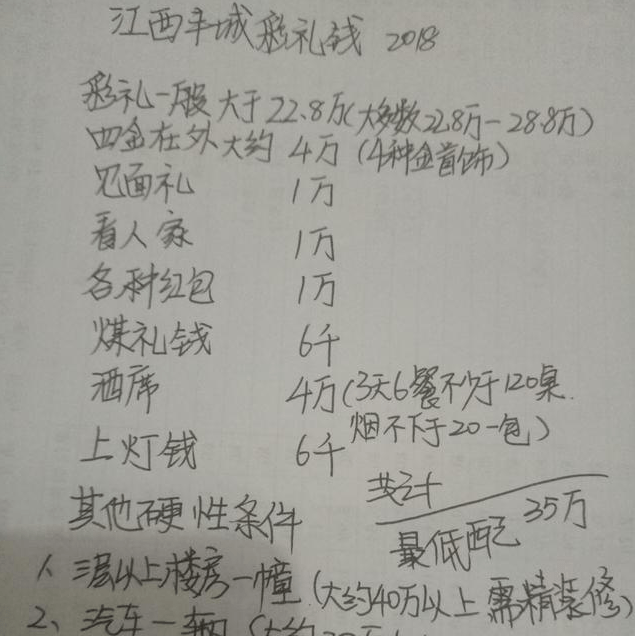 江西丰城彩礼钱 2018
彩礼一般大于22.8万(大多数22.8万-28.8万)
四金在外大约 4万 (4种金首饰)
见面礼 1万
看人家 1万
各种红包 1万
煤礼钱 6千
酒席 4万(3天6餐不少于120桌.
烟不下于20一包)
上灯钱 6千
共计 35万
最低配
其他硬性条件
1、三层以上楼房一幢 (大约40万以上 需精装修)
2、汽车一辆 (大约